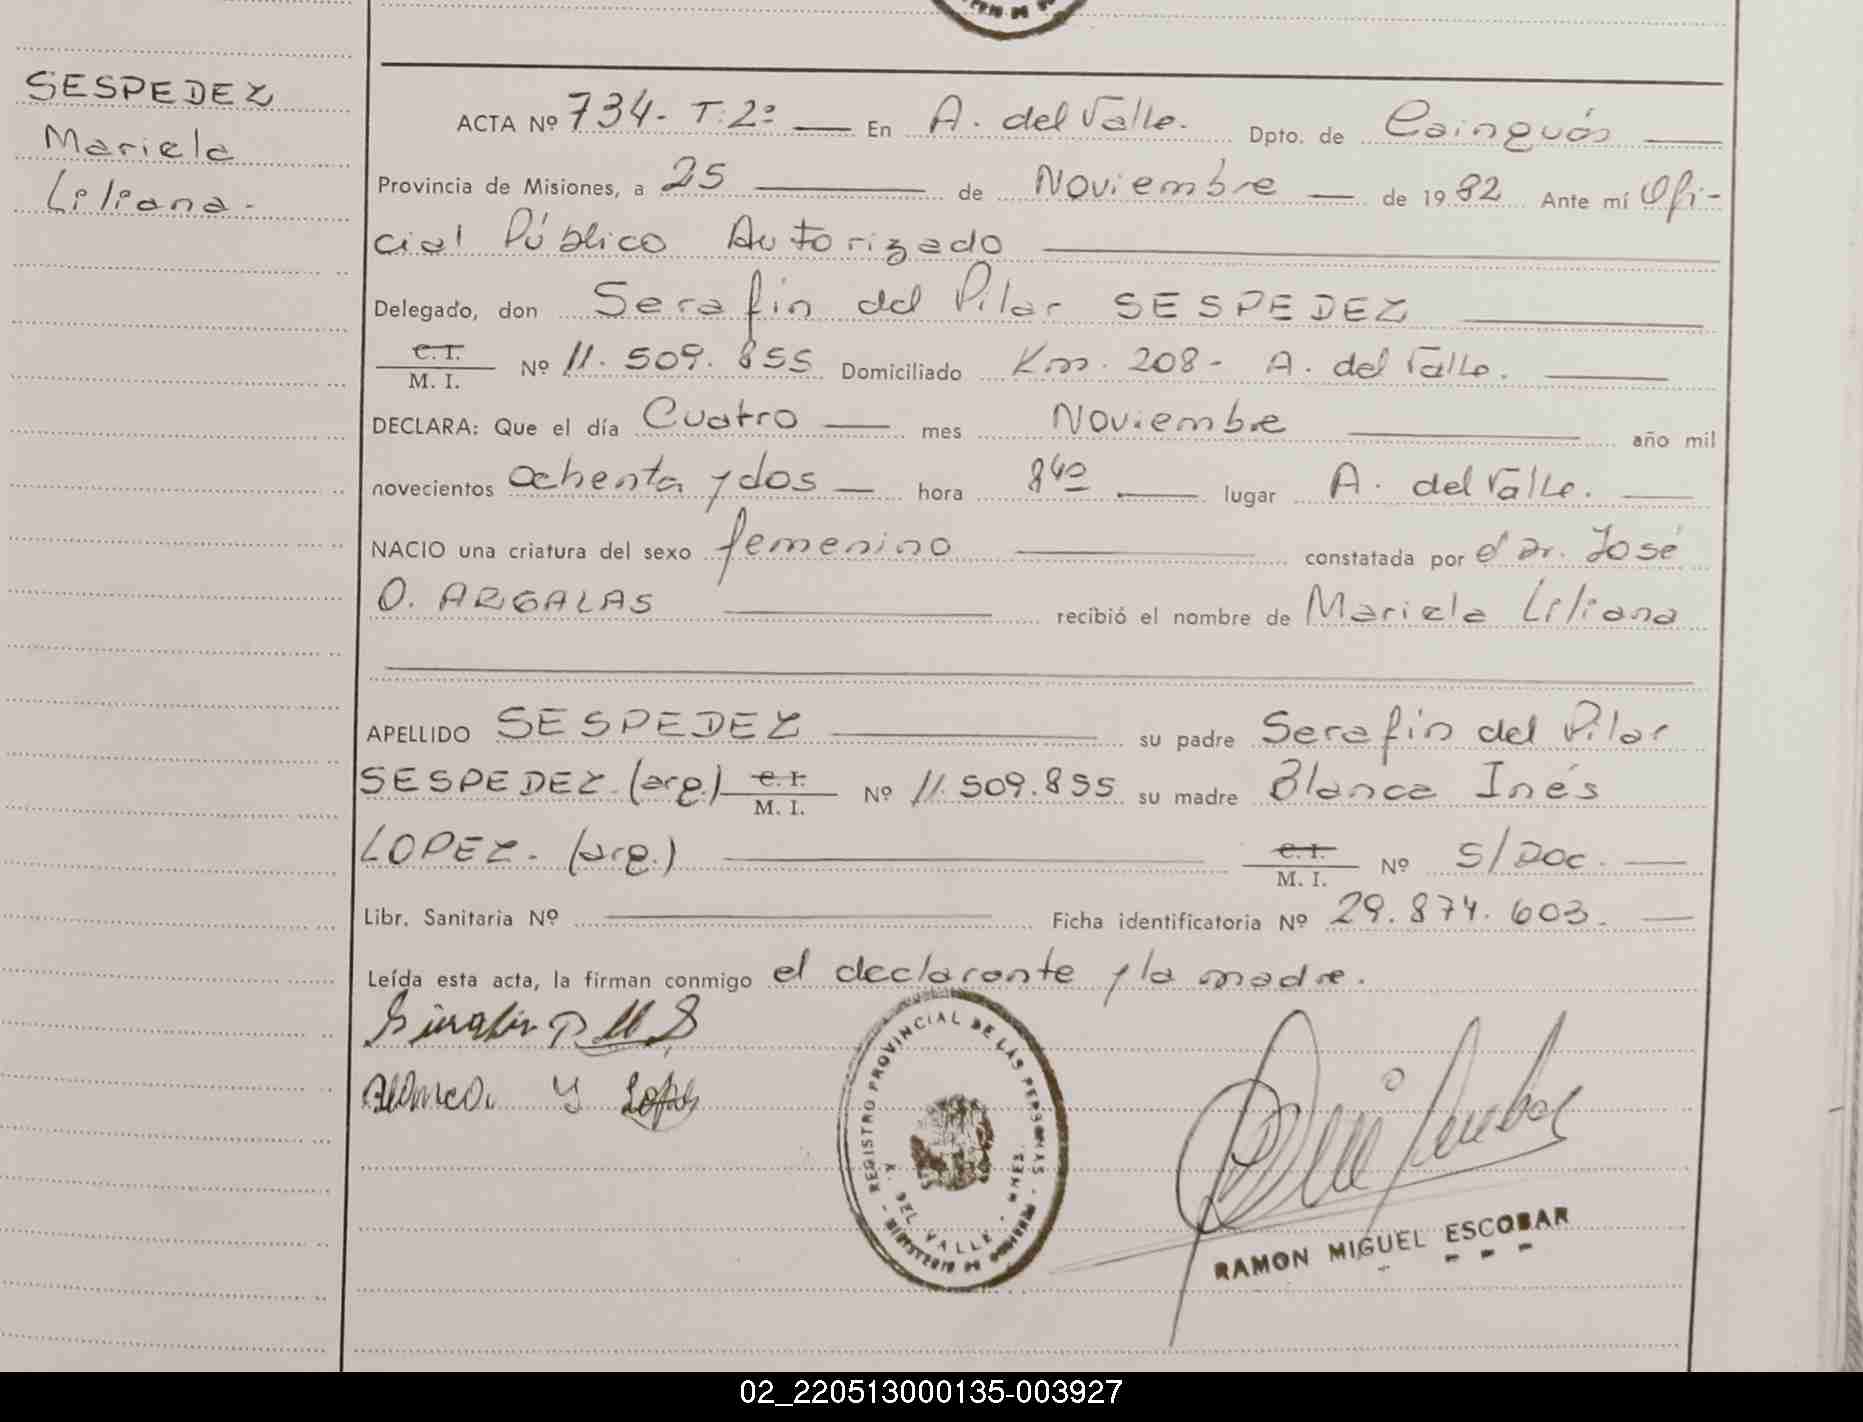 SESPEDEZ
Mariela
Liliana.-
ACTA Nº 734- T. 2º — En A. del Valle. Dpto. de Cainguás —
Provincia de Misiones, a 25 — de Noviembre — de 1982 Ante mí Ofi-
cial Público Autorizado —
Delegado, don Serafín del Pilar SESPEDEZ —
C.I.
M. I. Nº 11.509.855 Domiciliado Km. 208- A. del Valle. —
DECLARA: Que el día Cuatro — mes Noviembre — año mil
novecientos ochenta y dos — hora 8⁴⁰ — lugar A. del Valle. —
NACIO una criatura del sexo femenino — constatada por el Dr. José
O. ARGALAS — recibió el nombre de Mariela Liliana
APELLIDO SESPEDEZ — su padre Serafín del Pilar
SESPEDEZ. (arg.) C.I. M. I. Nº 11.509.855 su madre Blanca Inés
LOPEZ. (arg.) — C.I. M. I. Nº S/Doc. —
Libr. Sanitaria Nº — Ficha identificatoria Nº 29.874.603. —
Leída esta acta, la firman conmigo el declarante y la madre.
REGISTRO PROVINCIAL DE LAS PERSONAS - MINISTERIO DE GOBIERNO -
A. DEL VALLE - MNES.
RAMON MIGUEL ESCOBAR
02_220513000135-003927